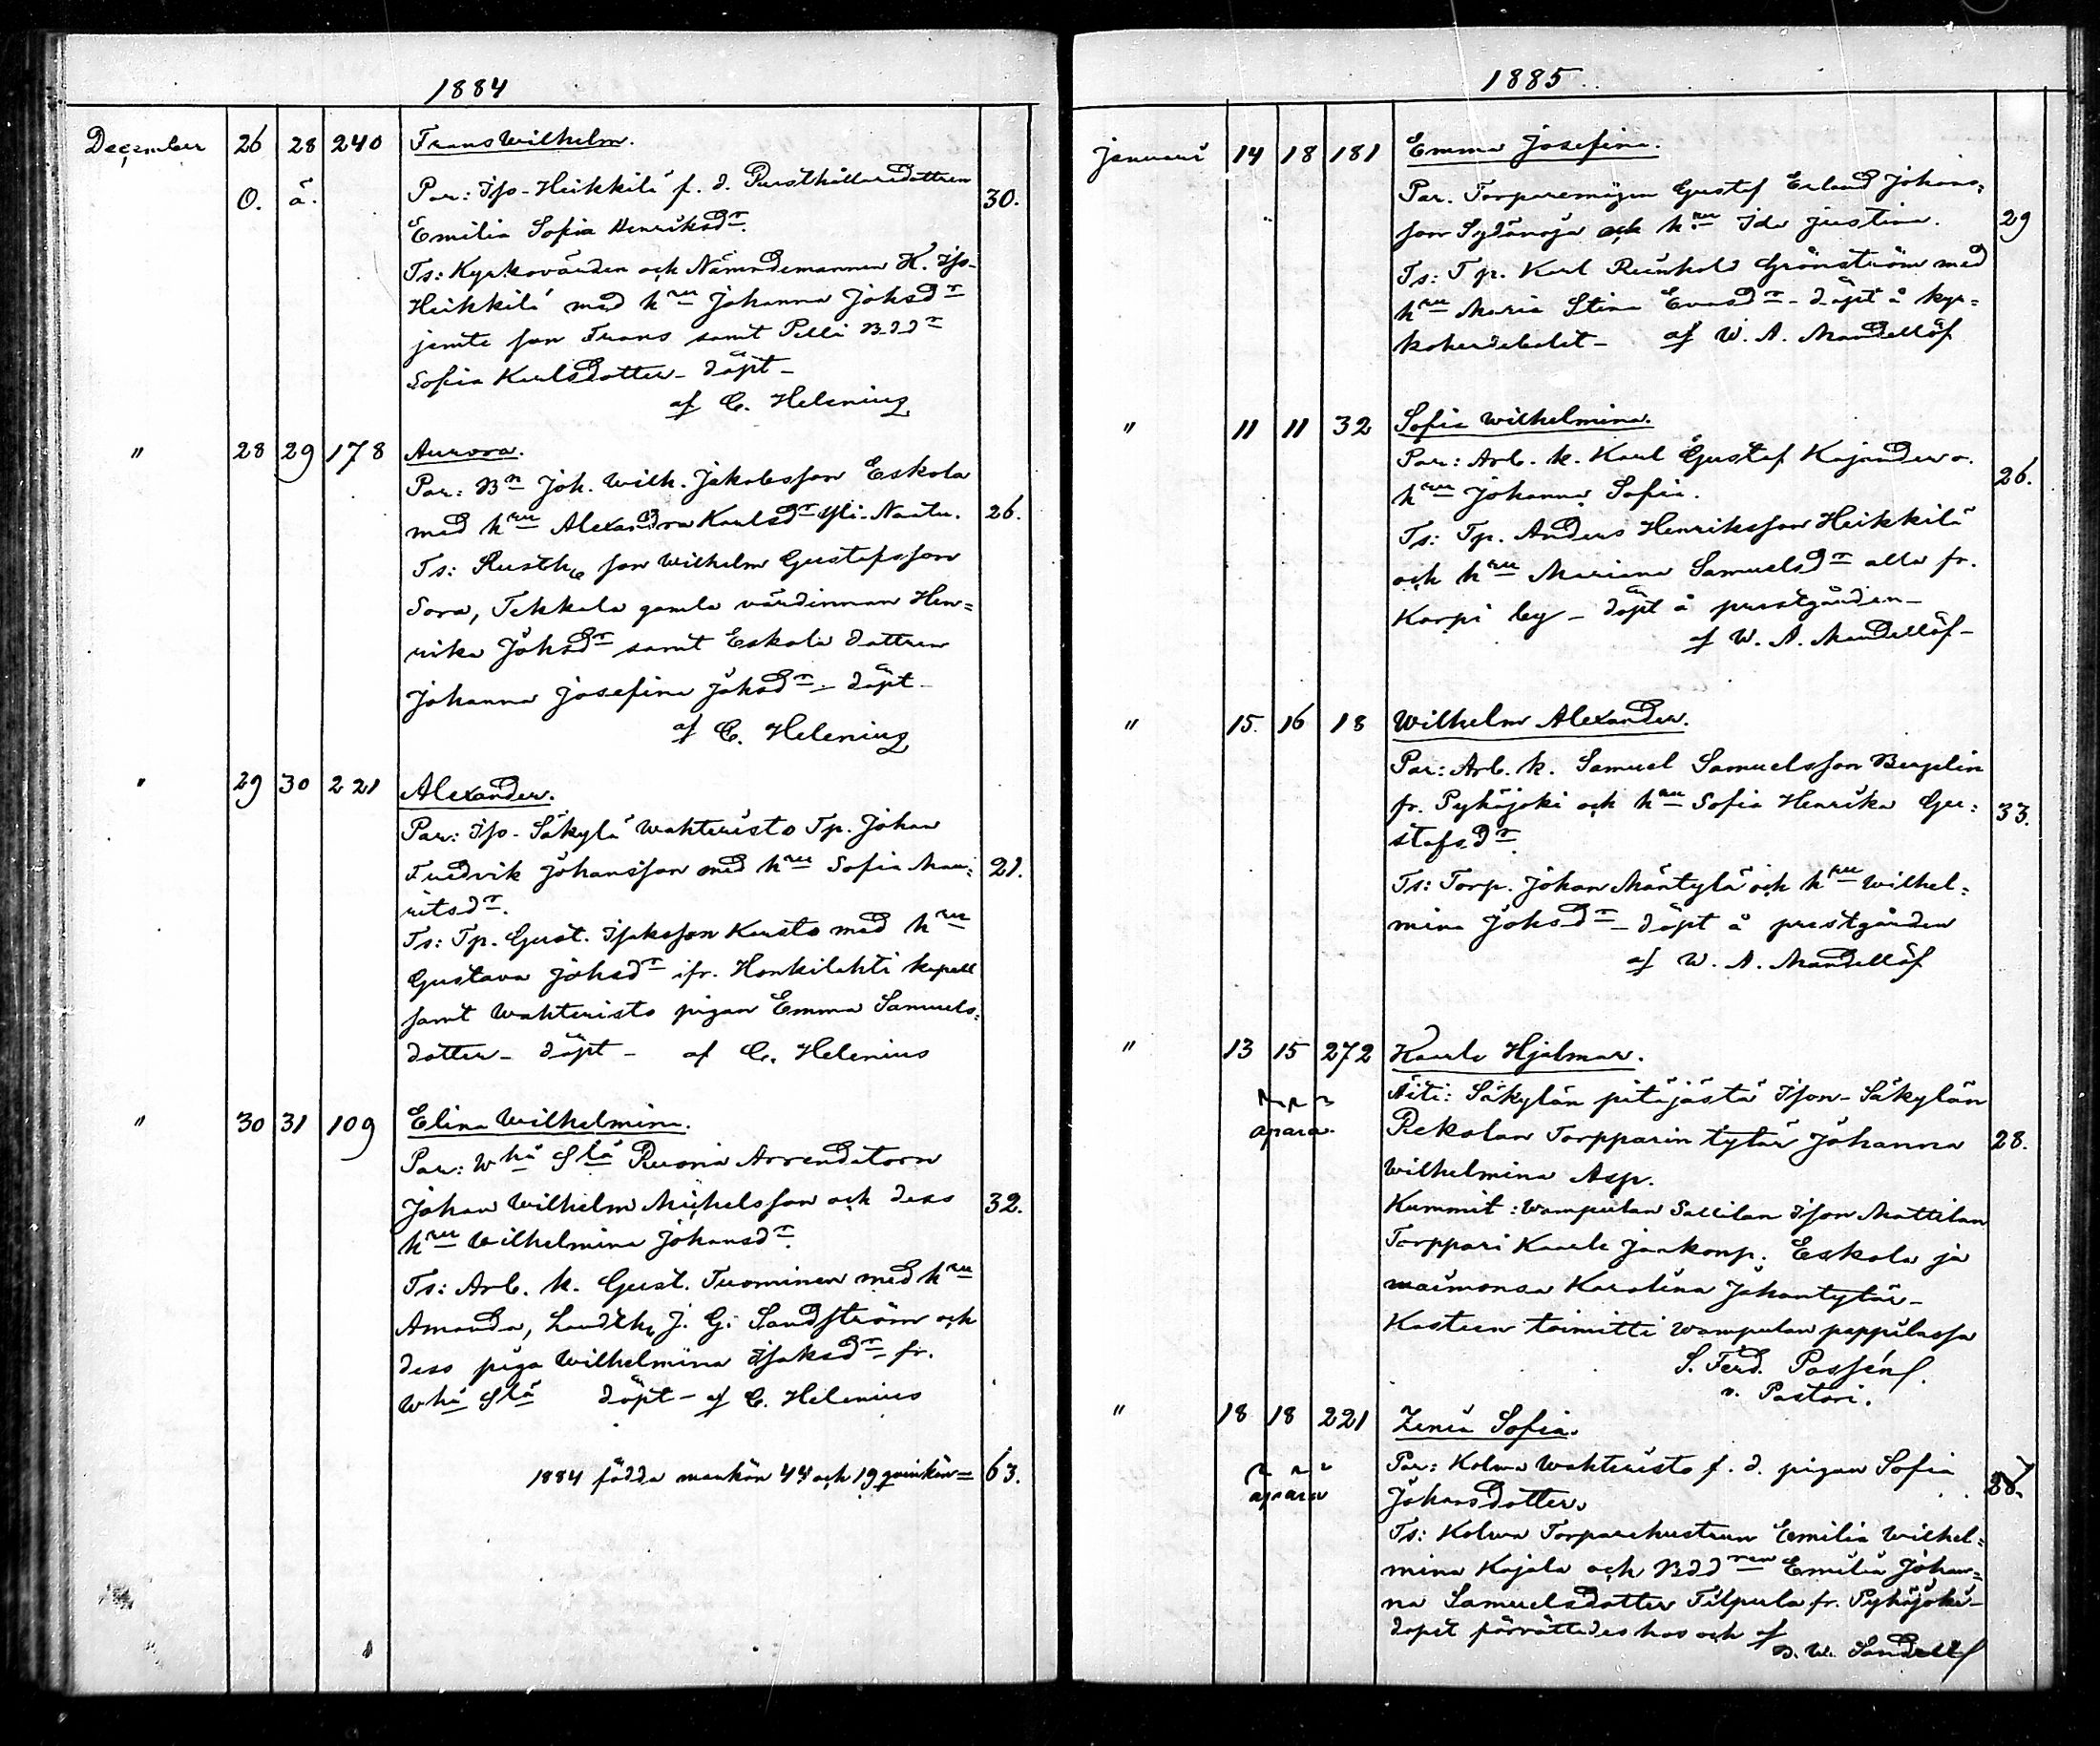 1884
December 26 28 240 Frans Wilhelm.
O. ä. Par: Iso-Heikkilä f. d. Rusthållaredottren 30.
Emilia Sofia Henriksdr.
Ts: Kyrkovärden och Nämndemannen K. Iso-
Heikkilä med hru Johanna Johsdr
jemte son Frans samt Pelli Bddr
Sofia Karlsdotter - döpt -
af C. Helenius
" 28 29 178 Aurora.
Par: Bn Joh. Wilh. Jakobsson Eskola
med hru Alexandra Karlsdr Yli-Nautu. 26.
Ts: Rusth. son Wilhelm Gustafsson
Sora, Tekkala gamla värdinnan Hen=
rika Johsdr samt Eskola dottren
Johanna Josefina Johsdr - döpt -
af C. Helenius
" 29 30 221 Alexander.
Par: Iso-Säkylä Wahteristo Tp. Johan
Fredrik Johansson med hru Sofia Mau= 21.
ritsdr.
Ts: Tp. Gust. Isaksson Kausto med hru
Gustava Johsdr ifr. Honkilahti kapell
samt Wahteristo pigan Emma Samuels=
dotter - döpt - af C. Helenius
" 30 31 109 Elina Wilhelmina.
Par: Whä Slä Ruona Arrendatorn
Johan Wilhelm Michelsson och dess 32.
hru Wilhelmina Johansdr.
Ts: Arb. k. Gust. Tuominen med hru
Amanda, Landth. J. G. Sandström och
dess piga Wilhelmina Isaksdr fr.
Whä Slä döpt - af C. Helenius
1884 födda mankön 44 och 19 qvinkön = 63.
1885.
Januari 14 18 181 Emma Josefina.
Par. Torparemågen Gustaf Erland Johans=
son Sydänoja och hru Ida Justina. 29
Ts: Tp. Karl Reinhold Grönström med
hru Maria Stina Evasdr - döpt å kyr=
koherdebolet - af W. A. Mandellöf
" 11 11 32 Sofia Wilhelmina.
Par: Arb. k. Karl Gustaf Kajander o.
hru Johanna Sofia. 26.
Ts: Tp. Anders Henriksson Heikkilä
och hru Mariana Samuelsdr alla fr.
Korpi by - döpt å prestgården -
af W. A. Mandellöf -
" 15. 16 18 Wilhelm Alexander.
Par: Arb. k. Samuel Samuelsson Bergelin
fr. Pyhäjoki och hru Sofia Henrika Gu= 33.
stafsdr.
Ts: Torp. Johan Mäntylä och hru Wilhel=
mina Johsdr - döpt å prestgården
af W. A. Mandellöf
" 13 15 272 Kaarlo Hjalmar.
Äiti: Säkylän pitäjästä Ison-Säkylän
apara. Rekolan Torpparin tytär Johanna 28.
Wilhelmina Asp.
Kummit: Wampulan Sallilan Ison Mattilan
Torppari Kaarle Jaakonp. Eskola ja
waimonsa Karolina Johantytär -
Kasteen toimitti Wampulan pappilassa
S. Ferd. Passén.
v. Pastori.
" 18 18 221 Zenia Sofia.
Par: Kolwa Wahteristo f. d. pigan Sofia
apara Johansdotter.
Ts: Kolwa Torparehustrun Emilia Wilhel=
mina Kajala och Bddren Emilia Johan=
na Samuelsdotter Tilpula fr. Pyhäjoki -
dopet förrättades hos och af
B. W. Sandell